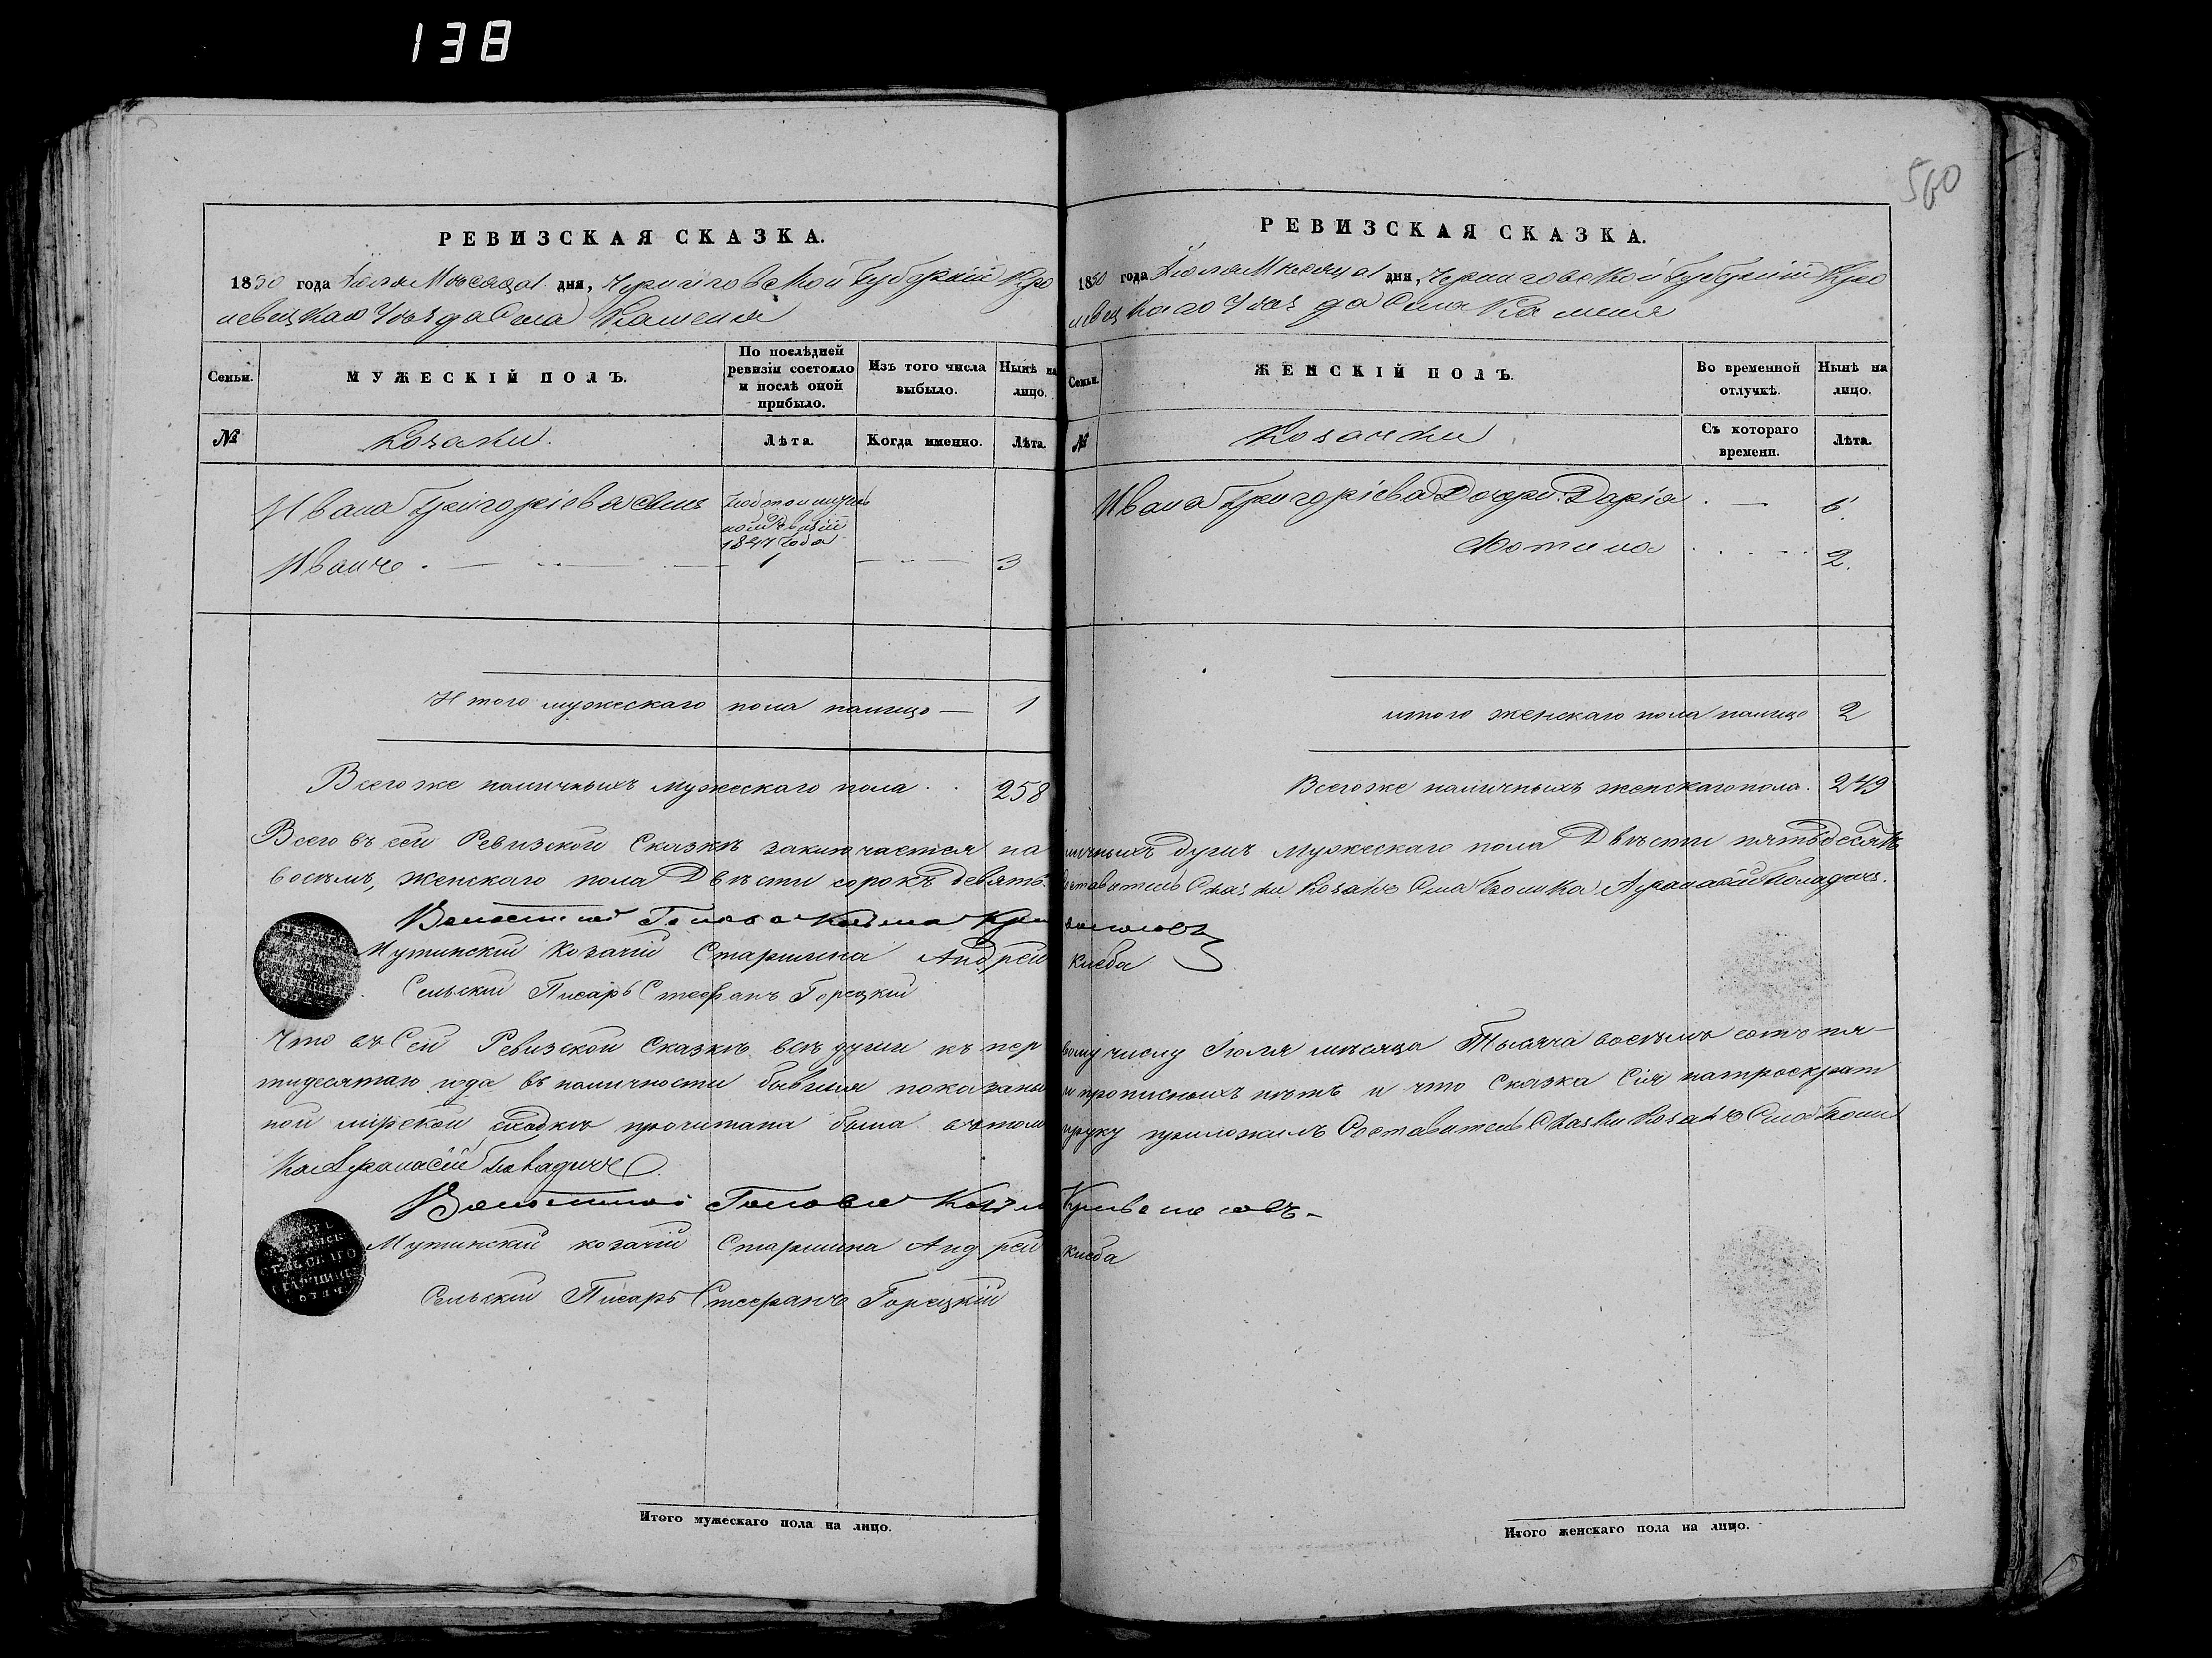 138
560
РЕВИЗСКАЯ СКАЗКА.
1850 года Іюля Мѣсяца 1 дня, Черниговской Губерніи Кро
левецкаго Уѣзда Села Каменя
Семьи.
МУЖЕСКІЙ ПОЛЪ.
По послѣдней ревизіи состояло и послѣ оной прибыло.
Изъ того числа выбыло.
Нынѣ на лицо.
№
Козаки.
Лѣта.
Когда именно.
Лѣта.
Ивана Григорьева сынъ
1847 года
Иванъ 1 3
Итого мужескаго пола налицо — 1
Всего же наличныхъ мужескаго пола . . 258
РЕВИЗСКАЯ СКАЗКА.
1850 года Іюля Мѣсяца 1 дня, Черниговской Губерніи Кро
левецкаго Уѣзда Села Каменя
Семьи.
ЖЕНСКІЙ ПОЛЪ.
Во временной отлучкѣ.
Нынѣ на лицо.
№
Козачки
Съ котораго времени.
Лѣта.
Ивана Григоріева Дочери: Дарія . — 6.
Фотина 2.
итого женскаго пола налицо 2
Всего же наличныхъ женскаго пола. 249
Всего въ сей Ревизской Сказкѣ заключается на личныхъ душъ мужескаго пола Двѣсти пятьдесятъ
восемь, женскаго пола Двѣсти сорокъ девять. Составитель Сказки Козакъ Села Афанасій
Волостной Голова Козьма Кривоносовъ
Мутинскій козачій Старшина Андрей Клеба
Сельскій Писарь Стефанъ Горецкій
Что въ Сей Ревизской Сказкѣ всѣ души къ пер вому числу Іюля мѣсяца Тысяча восемь сотъ пя—
тидесятаго года въ наличности бывшія показаны и прописныхъ нѣтъ и что Сказка Сія натроекрат
ной мірской сходкѣ прочитана была вътом и руку приложилъ Составитель Сказки Козакъ Села
Афанасій
Волостной Голова Козьма Кривоносовъ —
Мутинскій козачій Старшина Андрей Клеба
Сельскій Писарь Стефанъ Горецкій
Итого мужескаго пола на лицо.
Итого женскаго пола на лицо.